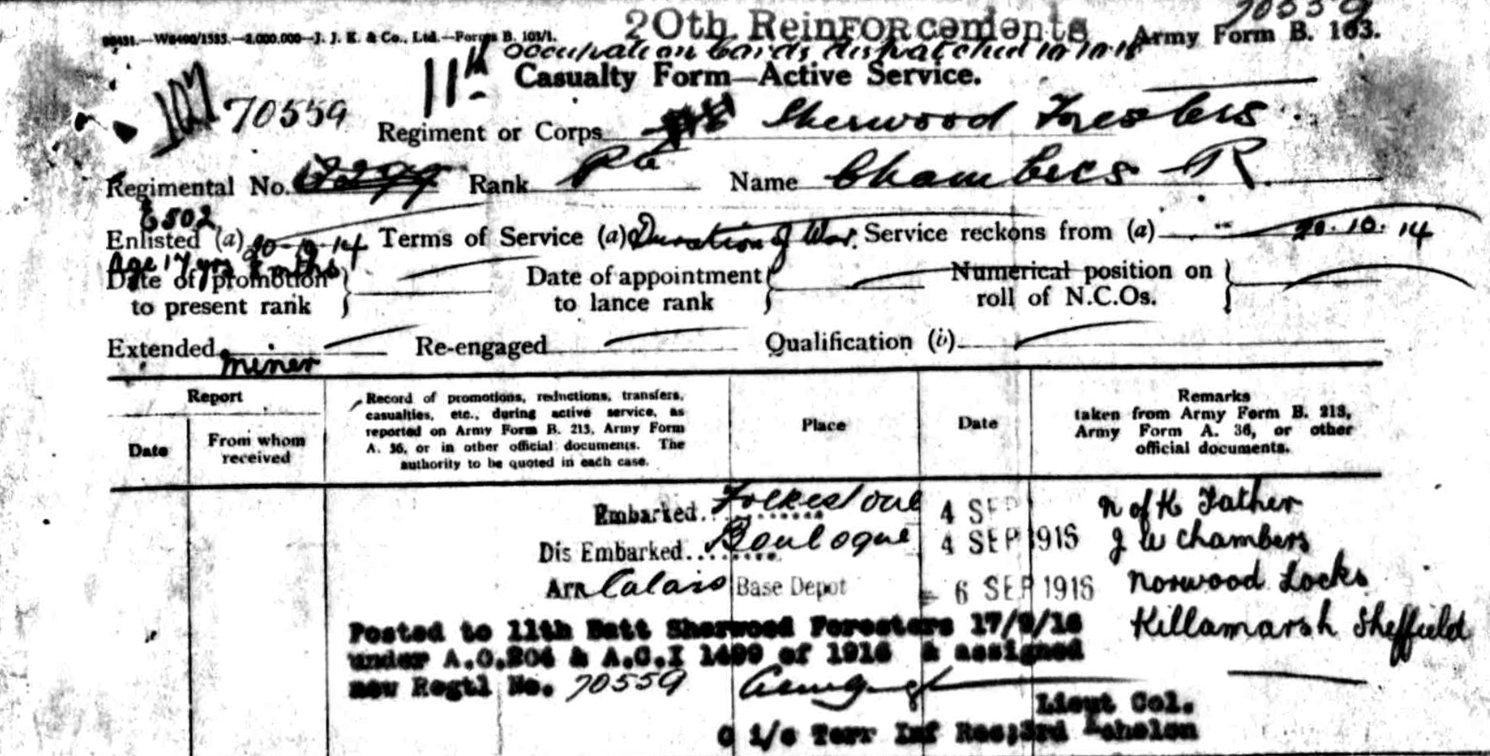 20th Reinforcements 70559
98431.—W8490/1535.—2,000,000—J. J. K. & Co., Ltd.—Forms B. 103/1. Army Form B. 103.
Occupation Cards dispatched
11th Casualty Form—Active Service.
70559 Regiment or Corps Sherwood Foresters
Regimental No. Rank Pte Name Chambers R.
Enlisted (a) 20-10-14 Terms of Service (a) Duration of War. Service reckons from (a) 20.10.14
Age 17 yrs mths
Date of promotion to present rank Date of appointment to lance rank Numerical position on roll of N.C.Os.
Extended Re-engaged Qualification (b)
miner
Report
Date
From whom received
Record of promotions, reductions, transfers,
casualties, etc., during active service, as
reported on Army Form B. 213, Army Form
A. 36, or in other official documents. The
authority to be quoted in each case.
Place
Date
Remarks
taken from Army Form B. 213,
Army Form A. 36, or other
official documents.
Embarked Folkestone 4 SEP N of K Father
Dis Embarked Boulogne 4 SEP 1916 J W Chambers
Arr Calais Base Depot 6 SEP 1916 Norwood Locks
Killamarsh Sheffield
Posted to 11th Batt Sherwood Foresters 17/9/16
under A.O.204 & A.C.I 1499 of 1916 & assigned
new Regtl No. 70559
Lieut Col.
O i/c Terr Inf Rec;3rd Echelon